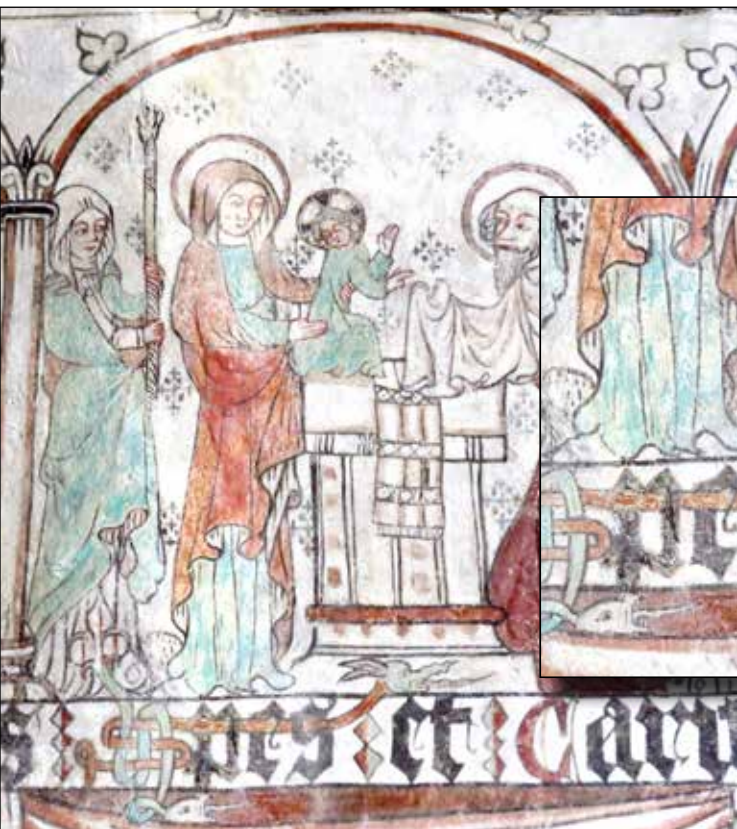 s Spes et Carit
Spe